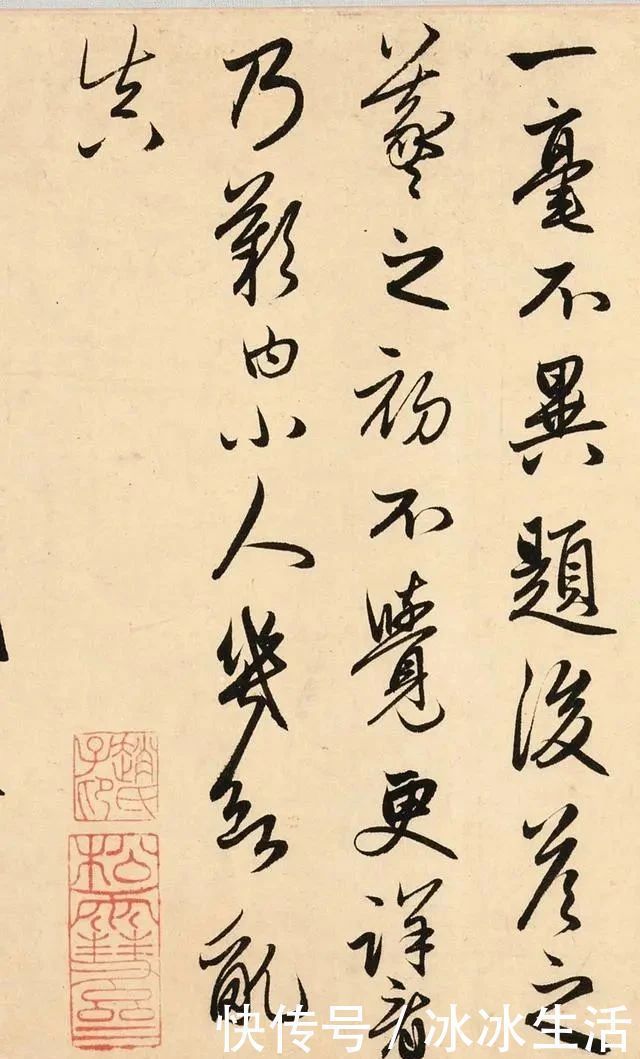 一毫不異題後答之
羲之初不覺更詳看
乃歎曰小人幾欲亂
真
趙氏子昂
松雪齋
快传号 / 冰冰生活